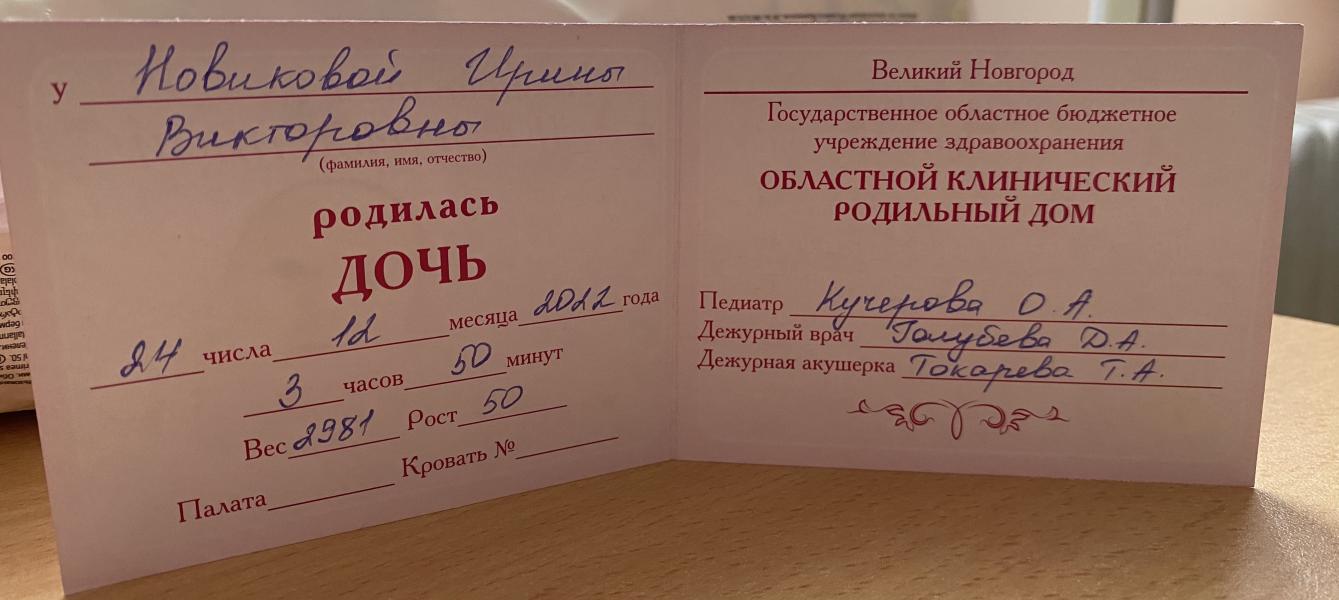 у Новиковой Ирины
Викторовны
(фамилия, имя, отчество)
родилась
ДОЧЬ
24 числа 12 месяца 2022 года
3 часов 50 минут
Вес 2981 Рост 50
Палата Кровать №
Великий Новгород
Государственное областное бюджетное
учреждение здравоохранения
ОБЛАСТНОЙ КЛИНИЧЕСКИЙ
РОДИЛЬНЫЙ ДОМ
Педиатр Кучерова О.А.
Дежурный врач Голубева Д.А.
Дежурная акушерка Токарева Т.А.